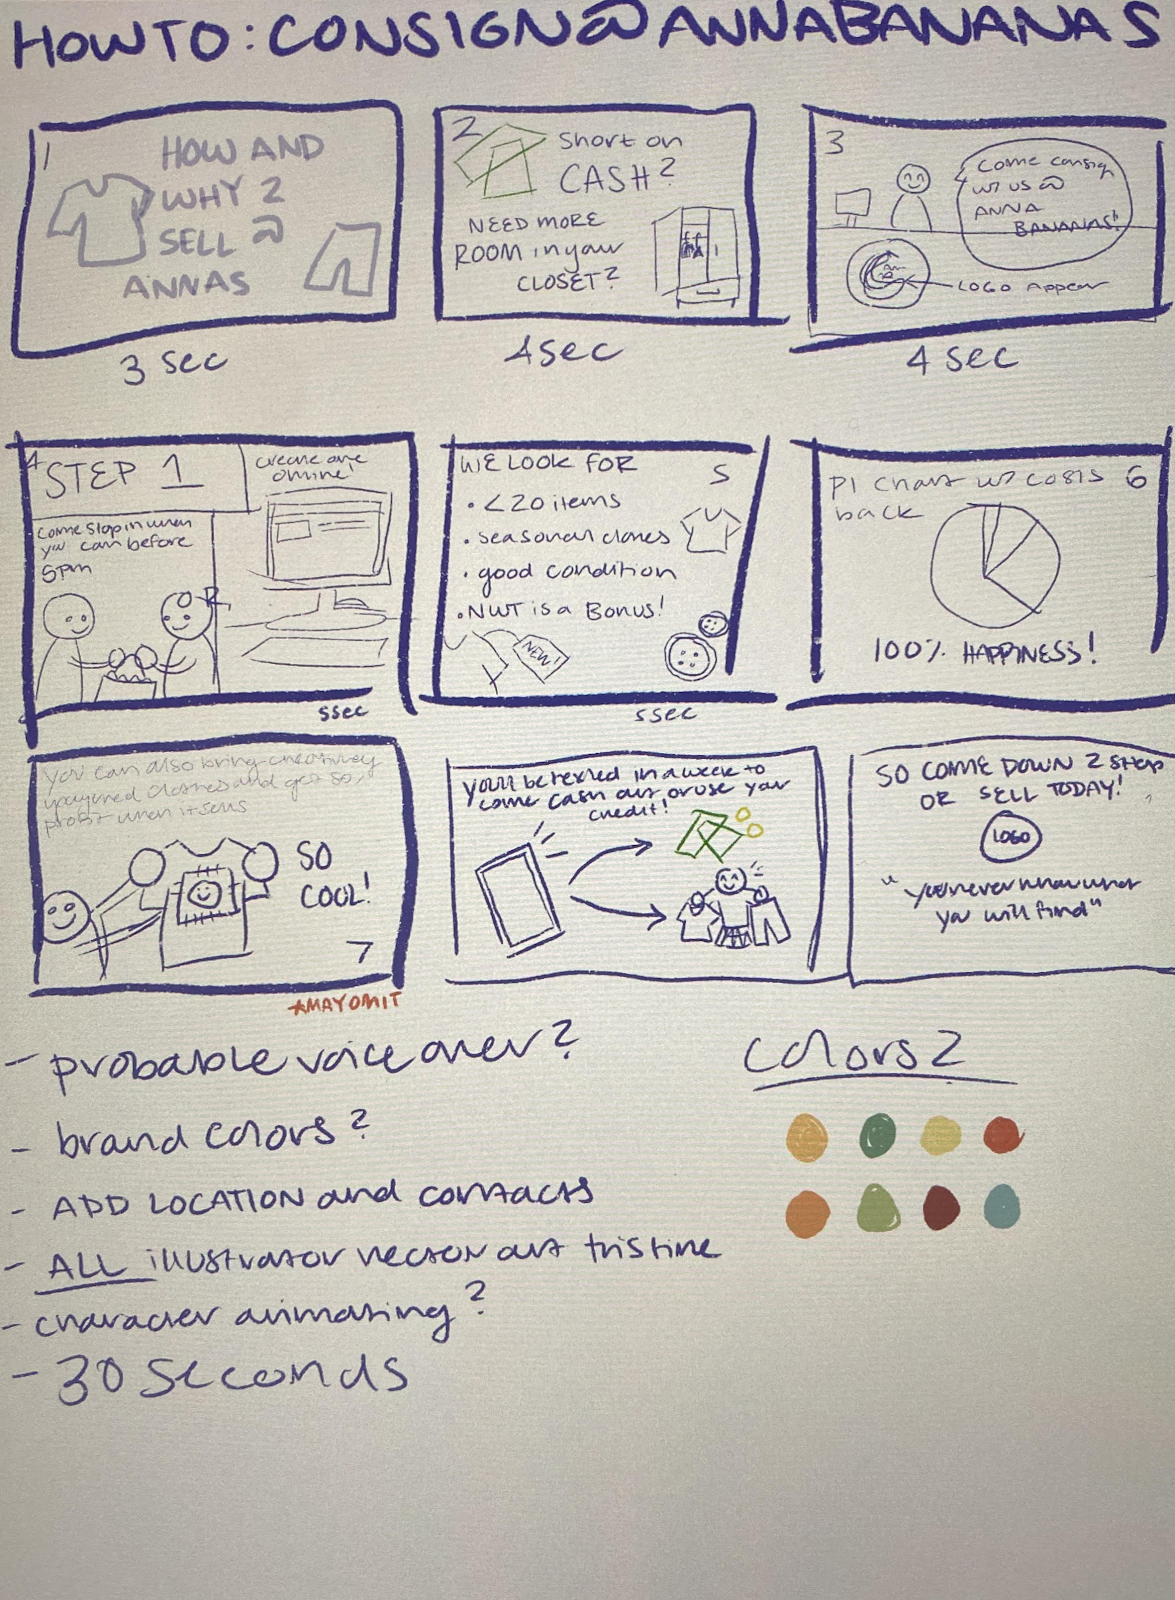 HOW TO: CONSIGN@ANNABANANAS
1
HOW AND
WHY 2
SELL @
ANNAS
3 sec
2
Short on
CASH?
NEED MORE
ROOM in your
CLOSET?
4 sec
3
Come consign
w/ us @
ANNA
BANANAS!
LOGO Appear
4 sec
4
STEP 1
Create one
online!
come stop in when
you can before
5pm
5sec
WE LOOK FOR
5
• <20 items
• seasonal clones
• good condition
• NWT is a Bonus!
NEW!
5sec
PI chart w/ costs
6
back
100% HAPPINESS!
You can also bring
clothes and get 50/
profit when it sells
SO
COOL!
7
*MAY OMIT
You'll be texted in a week to
come cash out or use your
credit!
SO COME DOWN 2 SHOP
OR SELL TODAY!
LOGO
"you never know what
you will find"
- probable voice over?
- brand colors?
- ADD LOCATION and contacts
- ALL illustrator vector art this time
- character animating?
- 30 seconds
colors 2